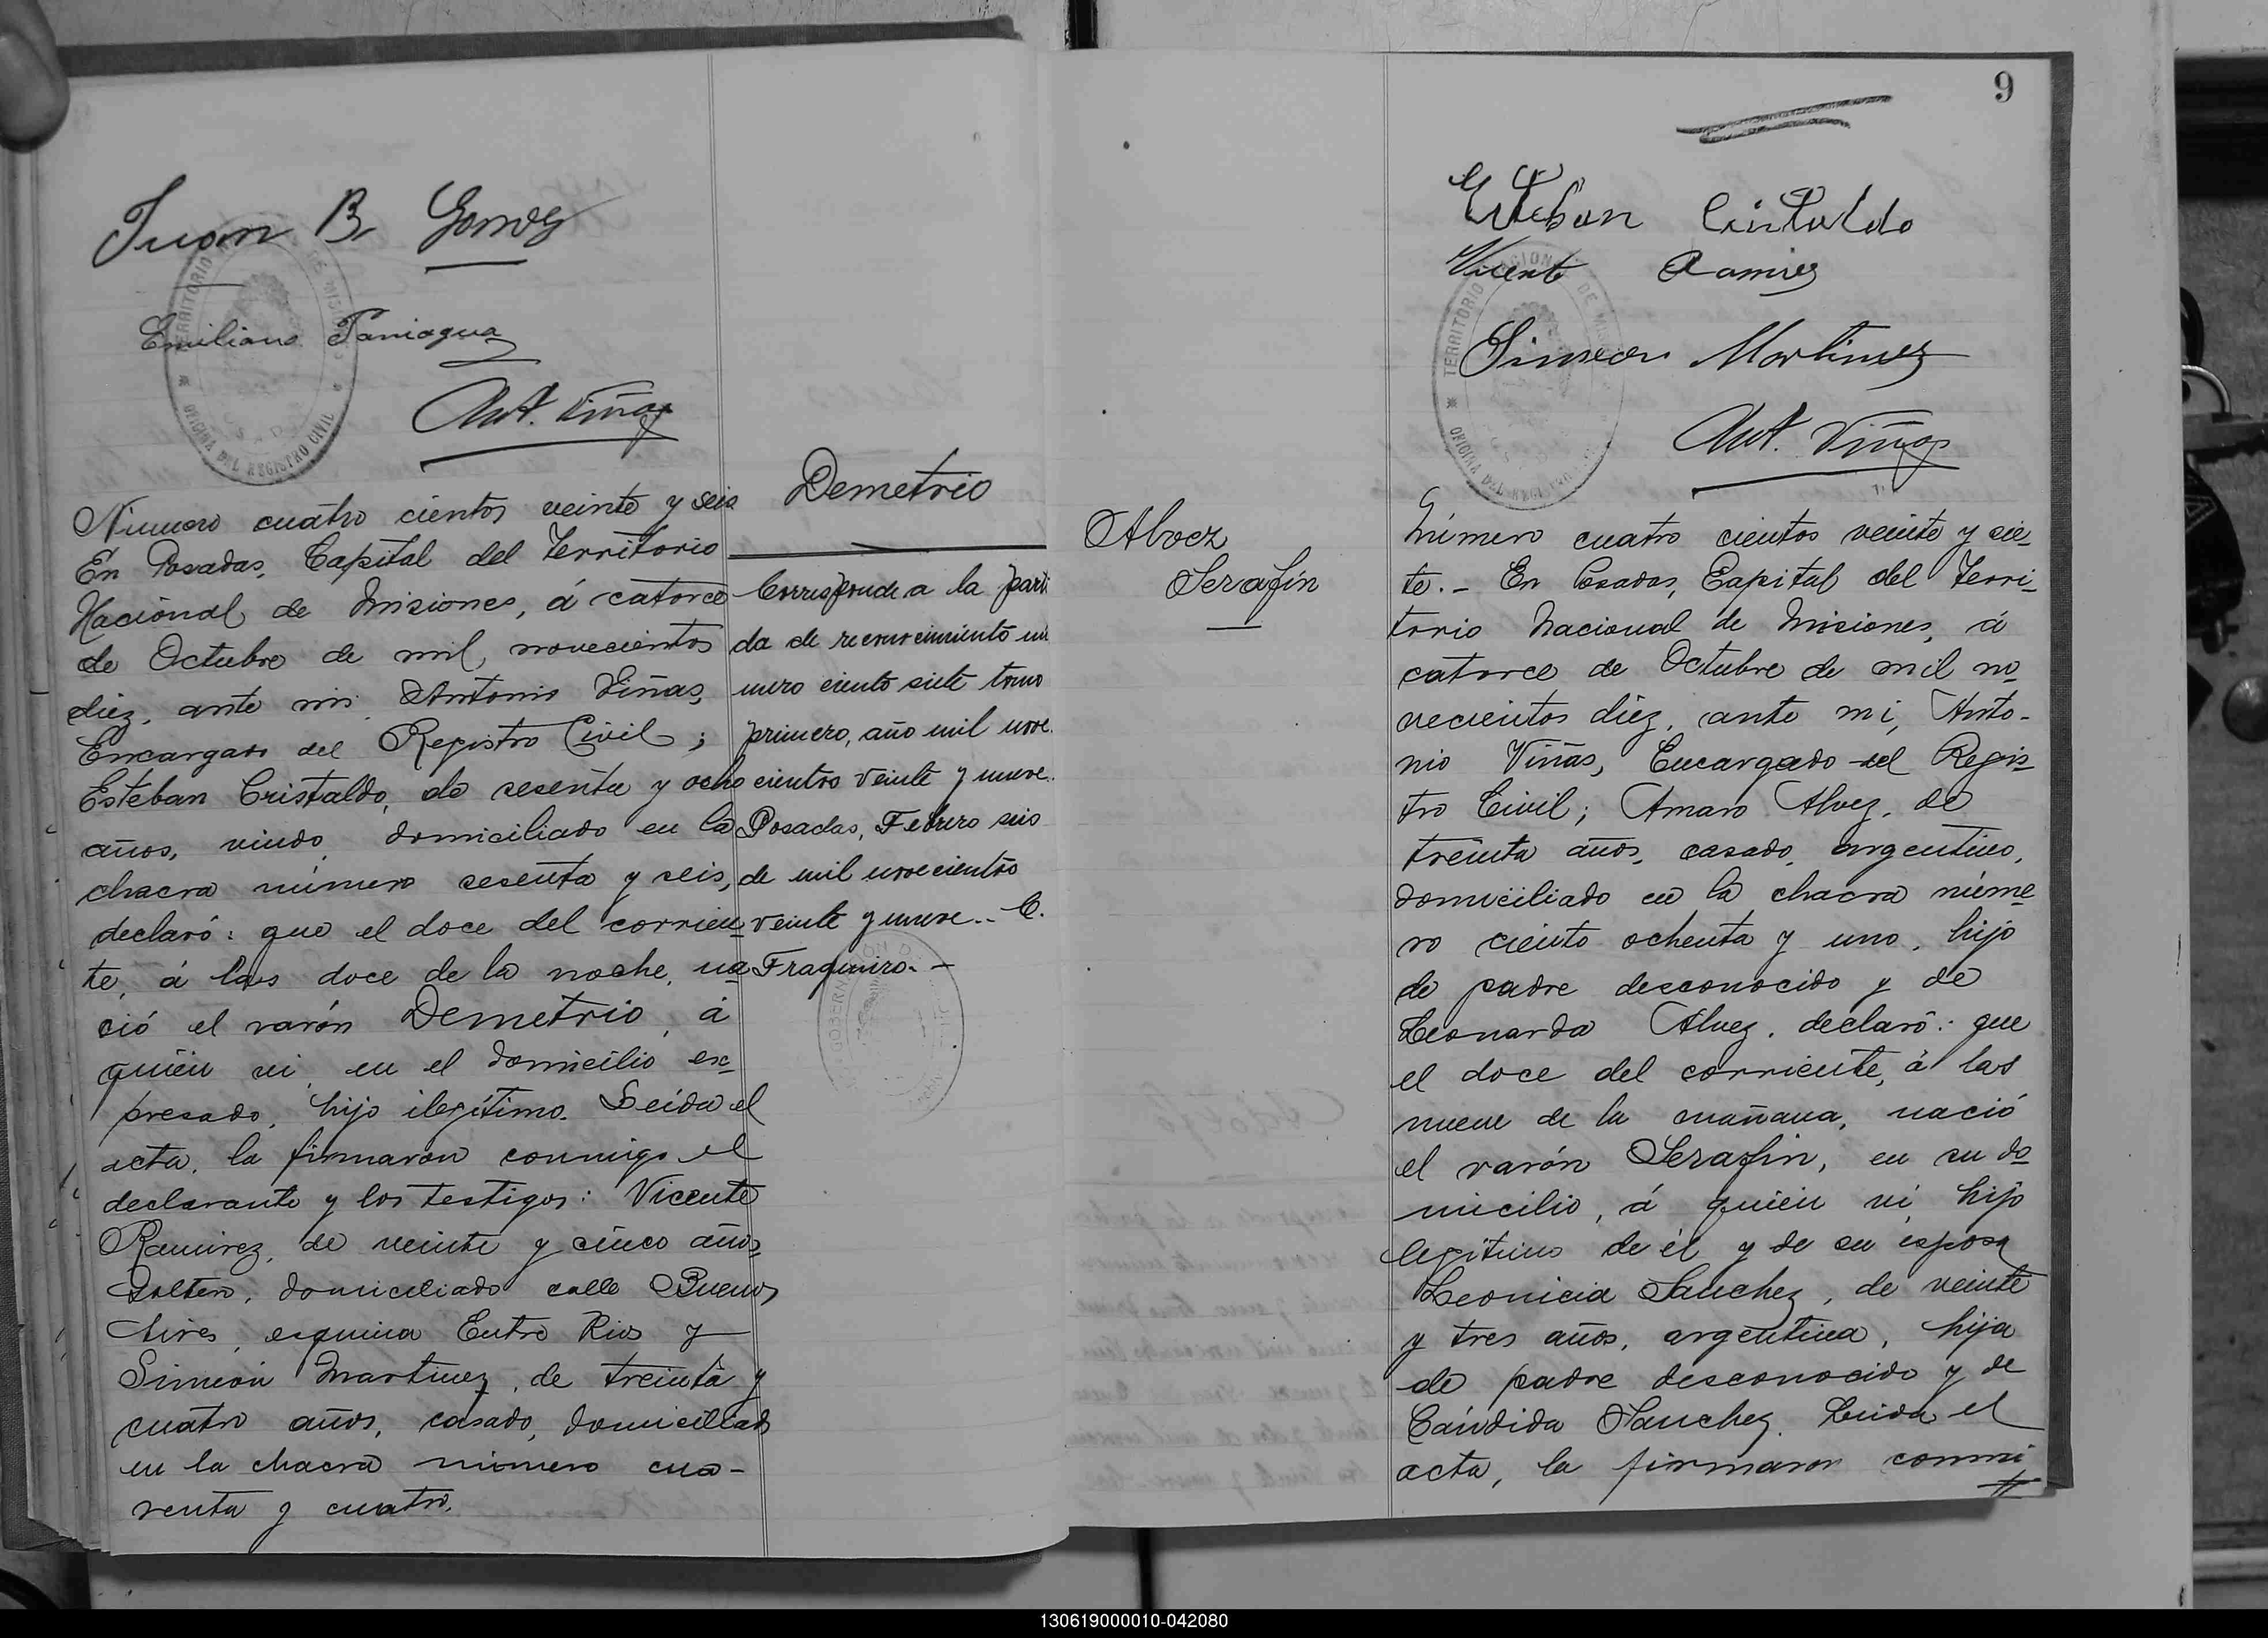 Juan B. Gomez
Emiliano Paniagua
Ant. Viñas
TERRITORIO
DE MIS
OFICINA DEL REGISTRO CIVIL
Número cuatro cientos veinte y seis
En Posadas, Capital del Territorio
Nacional de Misiones, á catorce
de Octubre de mil novecientos
diez, ante mi, Antonio Viñas,
Encargado del Registro Civil;
Esteban Cristaldo, de sesenta y ocho
años, viudo, domiciliado en la
chacra número sesenta y seis,
declaró: que el doce del corrien-
te, á las doce de la noche, na-
ció el varón Demetrio, á
quien vi, en el domicilio ex-
presado, hijo ilegítimo. Leida el
acta, la firmaron conmigo el
declarante y los testigos: Vicente
Ramirez, de veinte y cinco años,
soltero, domiciliado calle Buenos
Aires, esquina Entre Rios y
Simeón Martinez, de treinta y
cuatro años, casado, domiciliado
en la chacra número cua-
renta y cuatro.
Demetrio
Corresponde a la parti
da de reconocimiento nú
mero ciento siete tomo
primero, año mil nove.
cientos veinte y nueve.
Posadas, Febrero seis
de mil novecientos
veinte y nueve.- C.
Fraguiro.-
9
Esteban Cristaldo
Vicente Ramirez
Simeon Martinez
Ant. Viñas
TERRITORIO NACIONAL DE MIS
OFICINA DEL REGISTRO
Alvez
Serafín
Número cuatro cientos veinte y sie-
te.- En Posadas, Capital del Terri-
torio Nacional de Misiones, á
catorce de Octubre de mil no-
vecientos diez, ante mi, Anto-
nio Viñas, Encargado del Regis-
tro Civil; Amaro Alvez, de
treinta años, casado, argentino,
domiciliado en la chacra núme-
ro ciento ochenta y uno, hijo
de padre desconocido y de
Leonarda Alvez, declaró: que
el doce del corriente, á las
nueve de la mañana, nació
el varón Serafin, en su do-
micilio, á quien vi, hijo
legítimo de él y de su esposa
Leonicia Sanchez, de veinte
y tres años, argentina, hija
de padre desconocido y de
Cándida Sanchez. Leida el
acta, la firmaron conmi
130619000010-042080